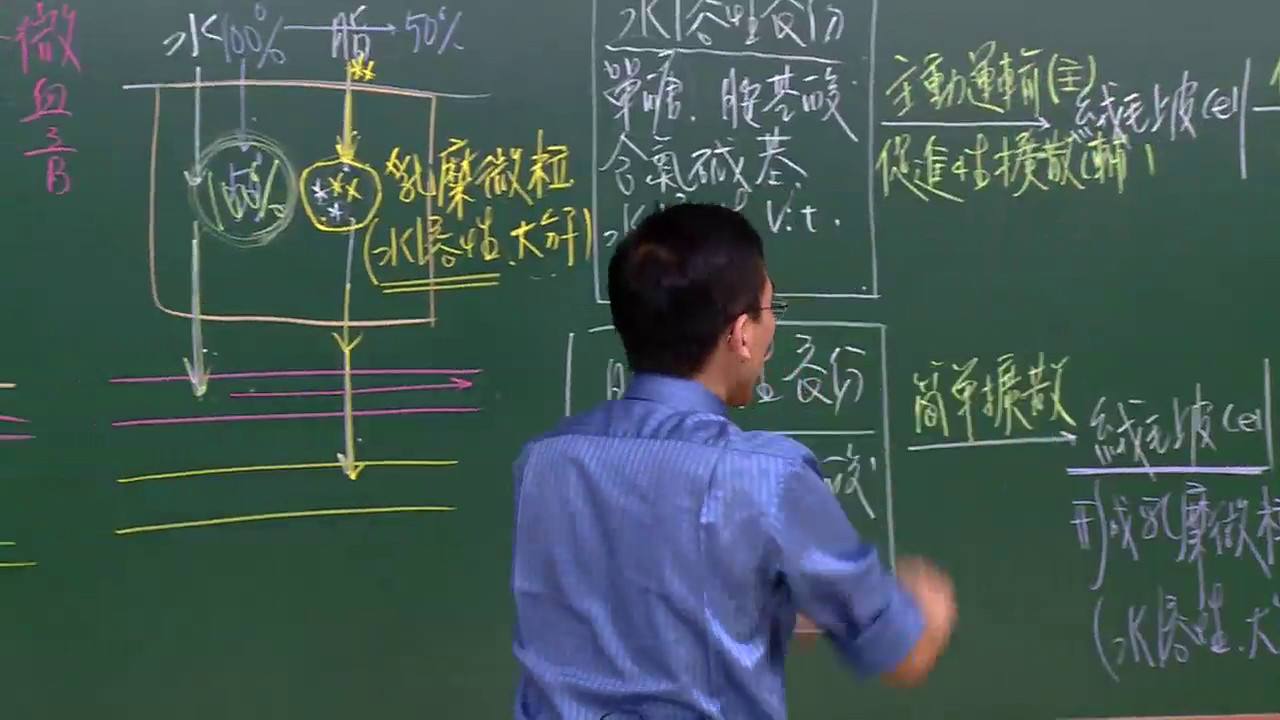 微
血
B
水100% → 脂 → 50%
100%
乳糜微粒
(水溶性.大分子)
水溶性養份
單醣. 胺基酸.
含氮碱基.
Vit.
性養份
酸.
主動運輸(主)
促進性擴散(輔)
絨毛上皮cell
簡單擴散
絨毛上皮cell
形成乳糜微粒
(水溶性.大